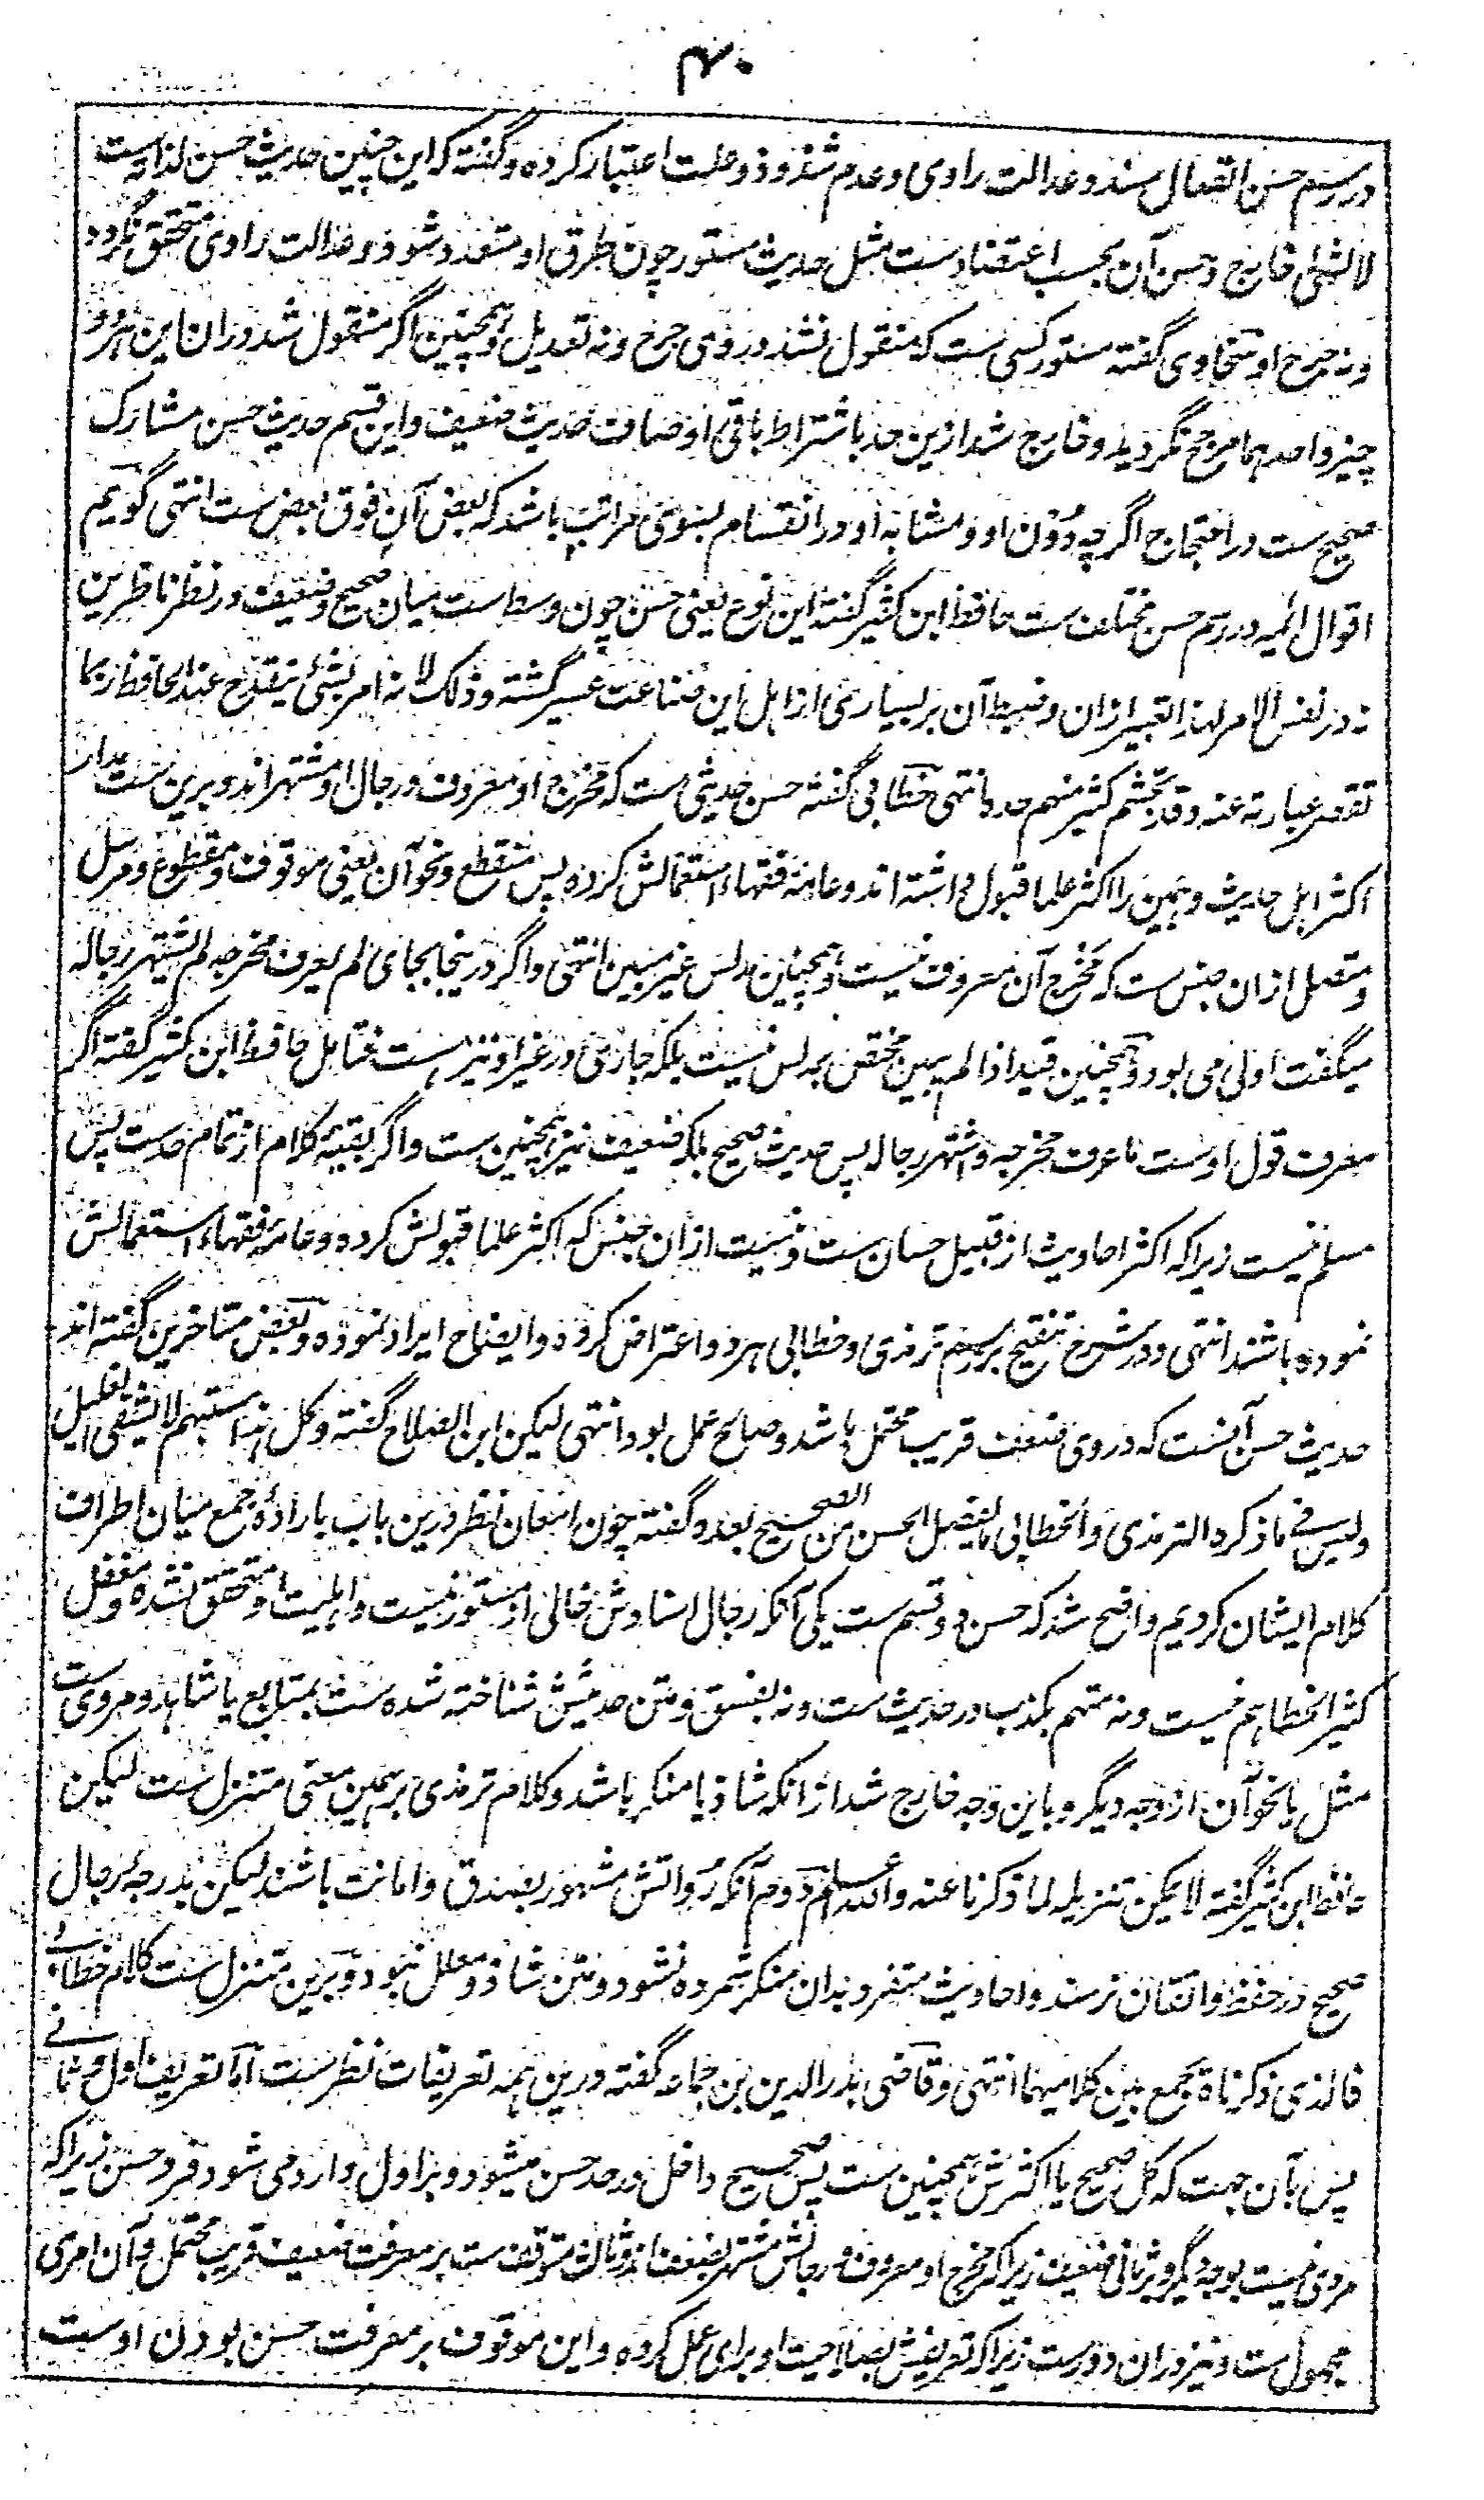 ۴۰
در رسم حسن اتصال سند و عدالت راوی و عدم شذوذ و علت اعتبار کرده و گفته که این چنین حدیث حسن لذاته است
لا لشئی خارج و حسن آن بحسب اعتضاد ست مثل حدیث مستور چون طرق او متعدد شود و عدالت راوی متحقق نگردد
و نه جرح او سخاوی گفته مستور کسی ست که منقول نشد در وی جرح و نه تعدیل و همچنین اگر منقول شد دران این هر دو
چیز و احدهما مرجح نگردید و خارج شد ازین حد باشتراط باقی اوصاف حدیث ضعیف و این قسم حدیث حسن مشارک
صحیح ست در احتجاج اگرچه دُوْن او و مشابه او در انقسام بسوی مراتب باشد که بعض آن فوق بعض ست انتهی گویم
اقوال ائمه در رسم حسن مختلف ست حافظ ابن کثیر گفته این نوع یعنی حسن چون وسط است میان صحیح و ضعیف در نظر ناظرین
نه در نفس الامر لهذا تعبیر ازان و ضبط آن بر بسیاری از اهل این صناعت عسیر گشته و ذلک لانه امر نسبی ینقدح عند الحافظ ربما
تقصر عبارته عنه و قد تجشم کثیر منهم حده انتهی خطابی گفته حسن حدیثی ست که مخرج او معروف و رجال او مشتهر اند و برین ست مدار
اکثر اهل حدیث و همین را اکثر علما قبول داشته اند و عامه فقهاء استعمالش کرده پس منقطع و نحو آن یعنی موقوف و مقطوع و مرسل
و متصل ازان جنس ست که مخرج آن معروف نیست و همچنین مدلس غیر مبین انتهی و اگر درینجا بجای لم یعرف مخرجه لم یشتهر رجاله
میگفت اولی می بود و همچنین قید اذا لم یبین مختص بمدلس نیست بلکه جاری در غیر او نیز هست فتامل حافظ ابن کثیر گفته اگر
معرف قول اوست ما عرف مخرجه و اشتهر رجاله پس حدیث صحیح بلکه ضعیف نیز همچنین ست و اگر بقیه کلام از تمام حد ست پس
مسلم نیست زیراکه اکثر احادیث از قبیل حسان ست و نیست ازان جنس که اکثر علما قبولش کرده و عامه فقهاء استعمالش
نموده باشند انتهی و در شرح تنقیح بر رسم ترمذی و خطابی هر دو اعتراض کرده و ایضاح ایراد نموده و بعض متاخرین گفته اند
حدیث حسن آنست که در وی ضعف قریب محتمل باشد و صالح عمل بود انتهی لیکن ابن الصلاح گفته و کل هذا مستبهم لا یشفی الغلیل
و لیس فی ما ذکره الترمذی و الخطابی ما یفصل الحسن من الصحیح بعده گفته چون امعان نظر درین باب باراده جمع میان اطراف
کلام ایشان کردیم واضح شد که حسن دو قسم ست یکی آنکه رجال اسنادش خالی از مستور نیست و اهلیت او متحقق نشده و مغفل
کثیر الخطا هم نیست و نه متهم بکذب در حدیث ست و نه بفسق و متن حدیثش شناخته شده ست بمتابع یا شاهد و مروی ست
مثل یا نحو آن از وجه دیگر و باین وجه خارج شد ازانکه شاذ یا منکر باشد و کلام ترمذی بر همین معنی متنزل ست لیکن
حافظ ابن کثیر گفته لا یمکن تنزیله لما ذکرنا عنه و الله اعلم دوم آنکه رُواتش مشهور بصدق و امانت باشند لیکن بدرجهٔ رجال
صحیح در حفظ و اتقان نرسند و احادیث متفرد بدان منکر شمرده نشود و متن شاذ و معلل نبود و برین متنزل ست کلام خطابی و
فالذی ذکرناه جمع بین کلامیهما انتهی و قاضی بدر الدین بن جماعه گفته درین همه تعریفات نظر ست اما تعریف اول و ثانی
پس بآن جهت که کل صحیح یا اکثرش همچنین ست پس صحیح داخل در حد حسن میشود و بر اول وارد می شود فرد حسن زیراکه
مروی نیست بوجه دیگر و بر ثانی ضعیف زیراکه مخرج او معروف و رجالش مشتهر بضعف اند و ثالث متوقف ست بر معرفت ضعیف قریب محتمل و آن امری
مجهول ست و نیز دران دور ست زیراکه تعریفش بصلاحیت او برای عمل کرده و این موقوف بر معرفت حسن بودن اوست